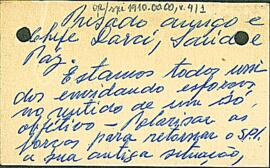 Prisado amigo e
chefe Darci, Saúde e
Paz.
Estamos todos uni
dos envidando esforços
no sentido de um só
objetivo — Polarisar as
forças para retornar o SPI
a sua antiga situação,